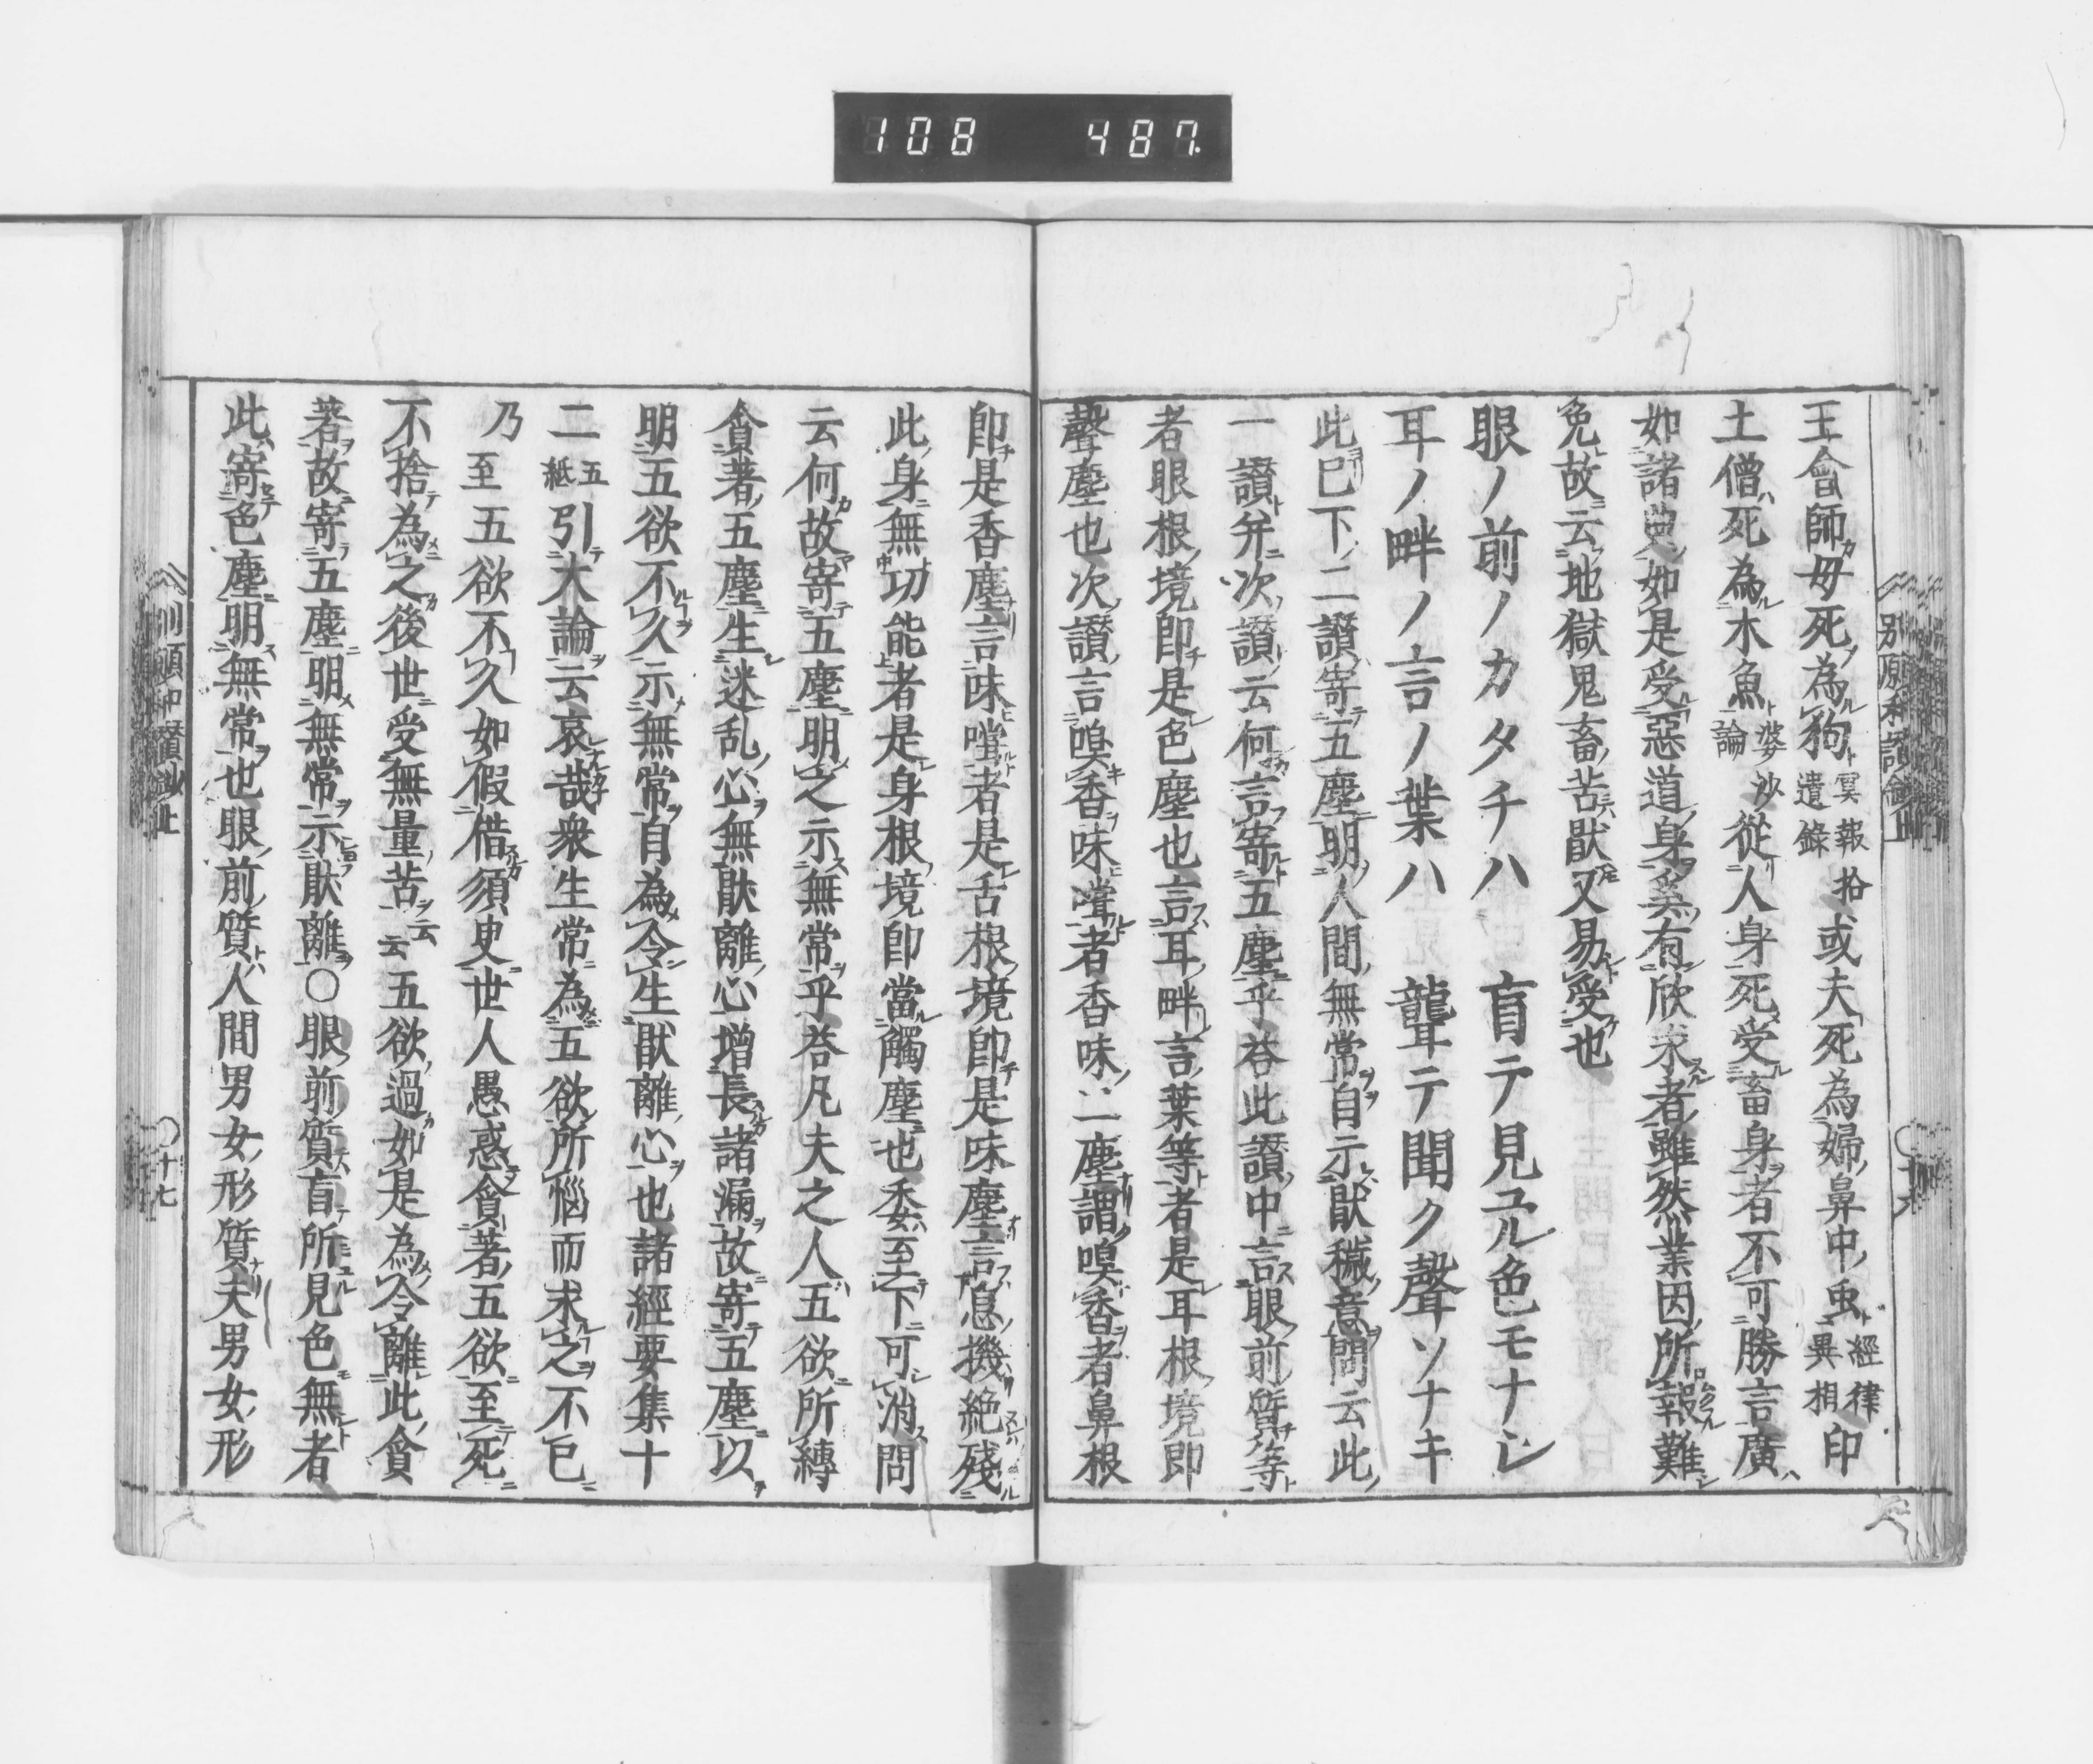 108 487.
王會師母死為狗冥報拾遺録或夫死為婦鼻中虫經律異相印
土僧死為木魚婆沙論從人身死受畜身者不可勝言廣
如諸典如是受惡道身矣有欣求者雖然業因所報難
免故云地獄鬼畜苦猒又易受也
眼ノ前ノカタチハ 盲テ見ユル色モナシ
耳ノ畔ノ言ノ葉ハ 聾テ聞ク聲ソナキ
此巳下二讃寄五塵明人間無常自示猒穢意問云此
一讃并次讃云何言寄五塵乎荅此讃中言眼前質等
者眼根境即是色塵也言耳畔言葉等者是耳根境即
聲塵也次讃言嗅香味甞者香味二塵謂嗅香者鼻根
即是香塵言味甞者是舌根境即是味塵言息機絶殘
此身無功能者是身根境即當觸塵也委至下可消問
云何故寄五塵明之示無常乎荅凡夫之人五欲所縛
貪著五塵生迷乱心無猒離心增長諸漏故寄五塵以
明五欲不久示無常自為令生猒離心也諸經要集十
二五紙引大論云哀哉衆生常為五欲所惱而求之不已
乃至五欲不久如假借須臾世人愚惑貪著五欲至死
不捨為之後世受無量苦云云五欲過如是為令離此貪
著故寄五塵明無常示猒離〇眼前質盲所見色無者
此寄色塵明無常也眼前質人間男女形質夫男女形
十七